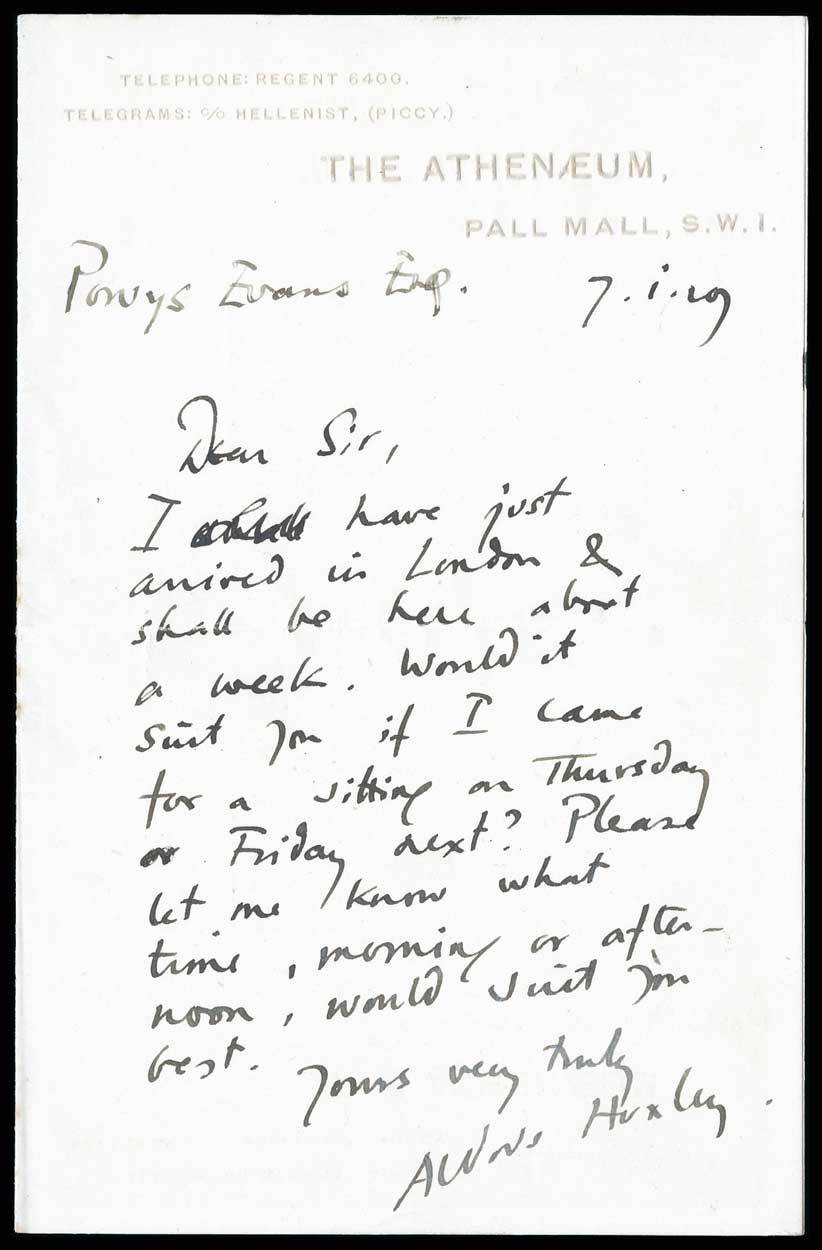 TELEPHONE: REGENT 6400.
TELEGRAMS: c/o HELLENIST, (PICCY.)
THE ATHENÆUM,
PALL MALL, S.W.1.
Powys Evans Esq. 7.i.29
Dear Sir,
I have just
arrived in London &
shall be here about
a week. Would it
suit you if I came
for a sitting on Thursday
or Friday next? Please
let me know what
time, morning or after-
noon, would suit you
best.
Yours very truly
Aldous Huxley.